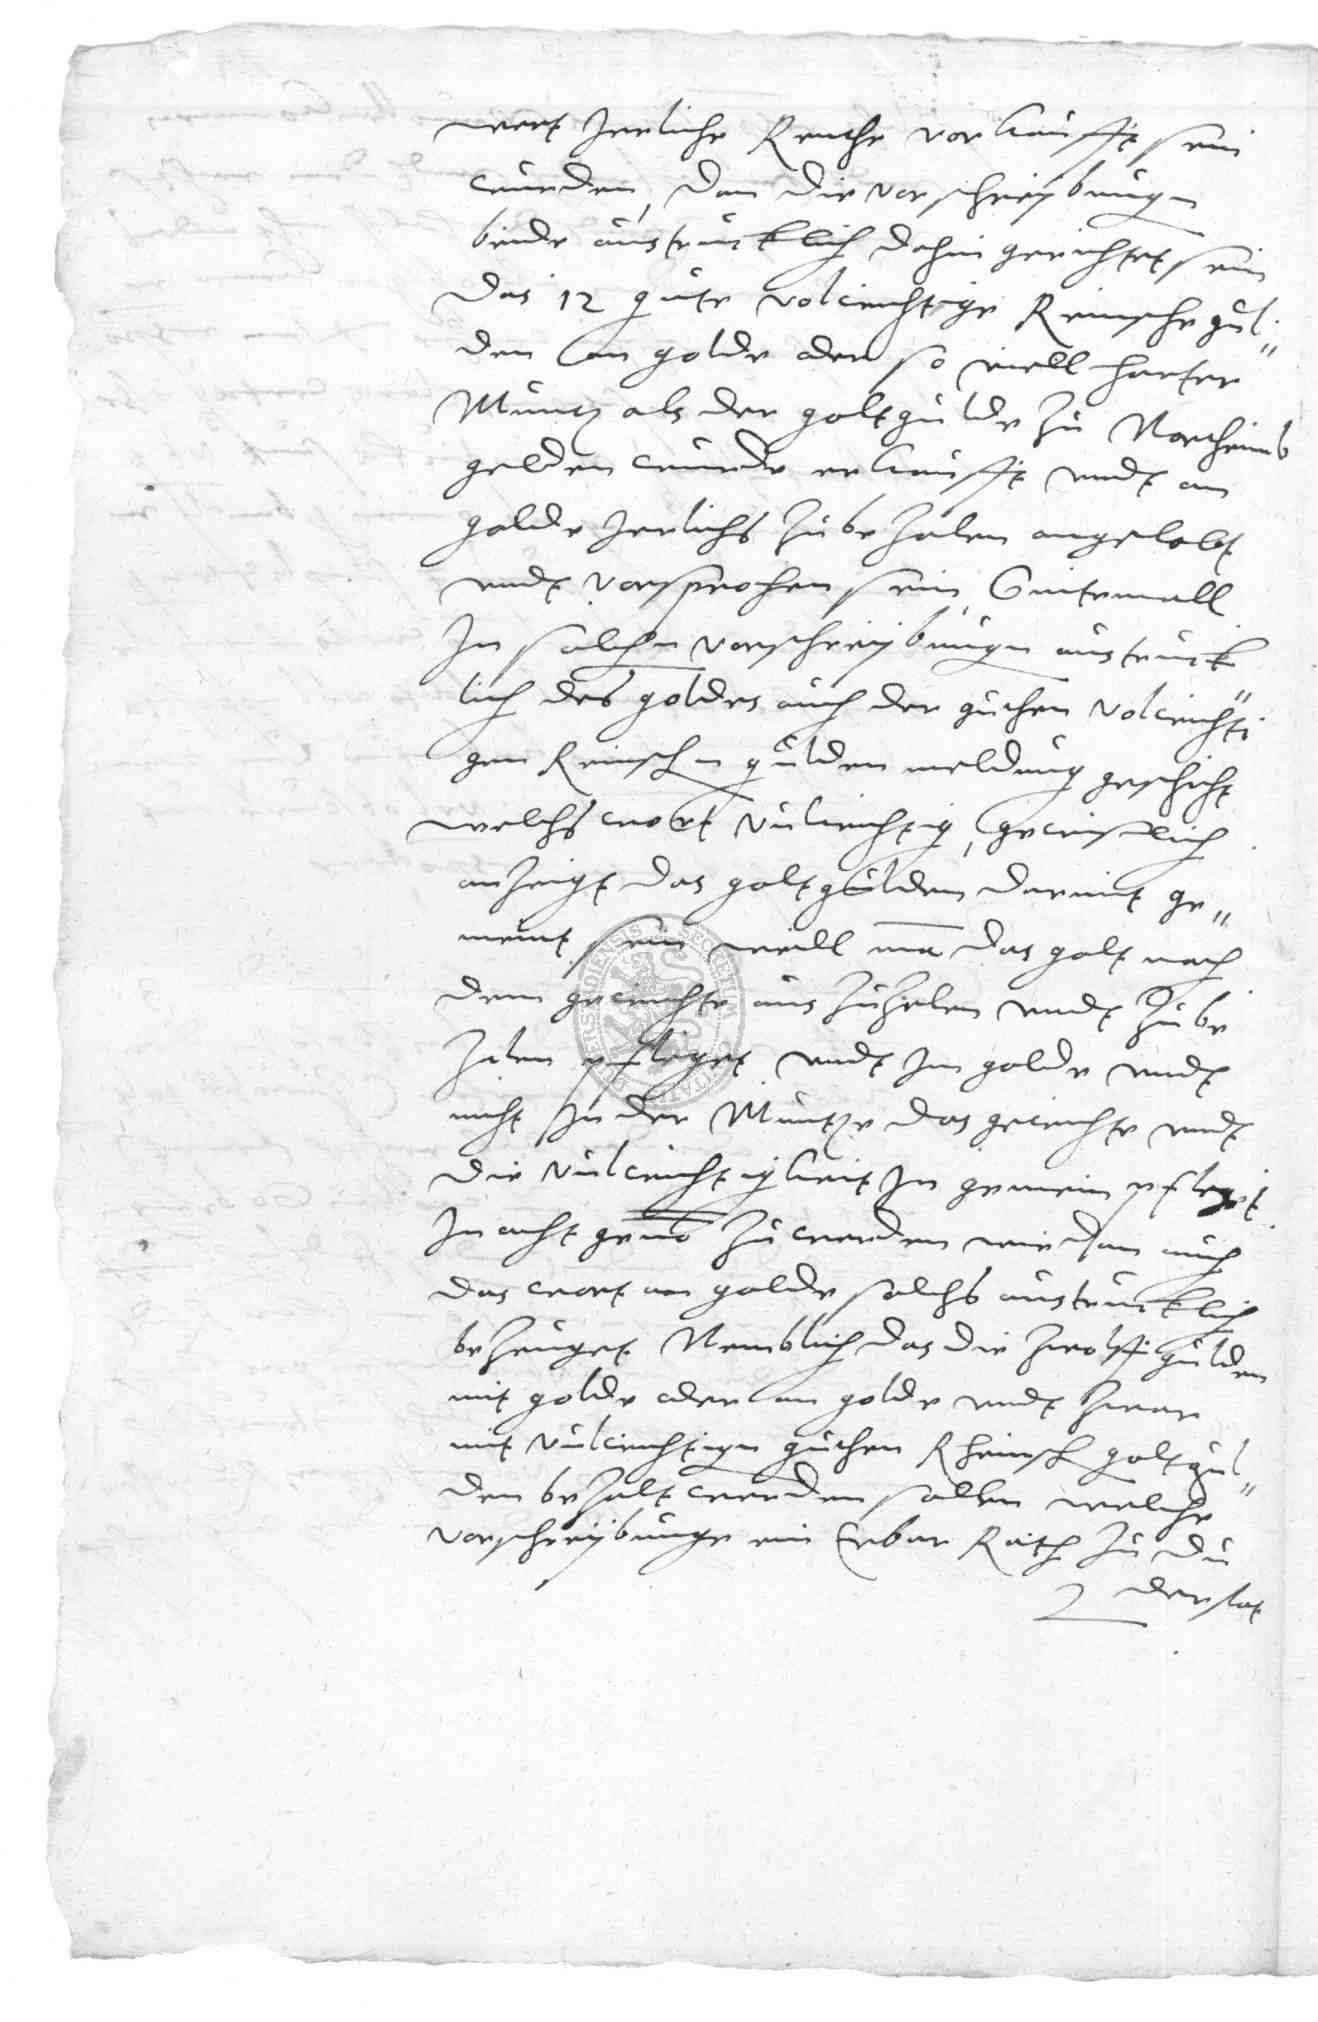 wert Jerliche Renthe vorkaufft sein
wurden, dan die vorschreÿbungen
beide austrucklich dahin gerichtet sein
das 12 gute volwichtige Reinsche gul¬
den an golde oder so viell harter
Muntz als der goltgulde zu Northeimb
gelden wurde erkaufft undt an
golde Jerlichs zubezalen angelobt
undt vorsprochen sein, Sintemall
In solchen vorschreÿbungen austruck
lich des goldes auch der guthen volwichti
gen Reinschen gulden meldung geschicht
welchs wort vulwichtig, gewislich
anzeigt das goltgulden darmit ge¬
meint sein weill ma das golt nach
dem gewichte auszuzelen undt zube
zalen pfleget undt Im golde undt
nicht In der Muntze das gewichte undt
die vulwichtigkeit In gemein pfleget
In acht geno zuwerden wie dan auch
das wort an golde solchs austrucklich
bezeuget Nemblich das die zwolff gulden
mit golde oder an golde undt zwar
mit vulwichtigen guthen Rheinsch goltgul¬
den bezalt werden sollen welche
vorschreÿbunge ein Erbar Rath zu Du
derstat